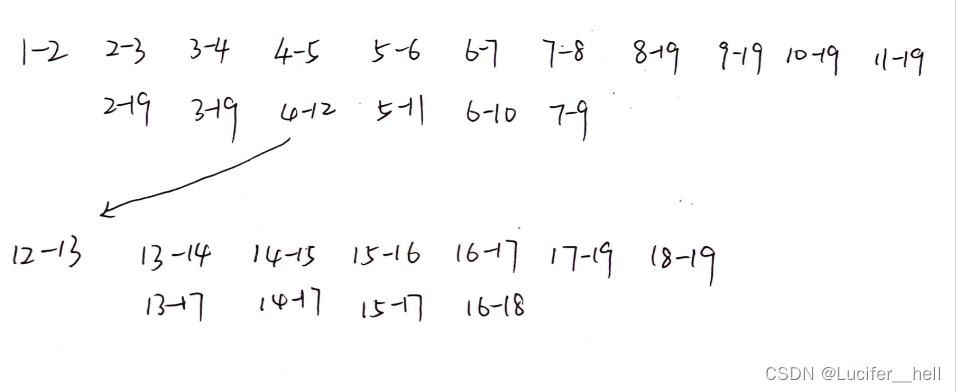 1-2 2-3 3-4 4-5 5-6 6-7 7-8 8-19 9-19 10-19 11-19
2-19 3-19 4-12 5-11 6-10 7-9
12-13 13-14 14-15 15-16 16-17 17-19 18-19
13-17 14-17 15-17 16-18
CSDN @Lucifer__hell